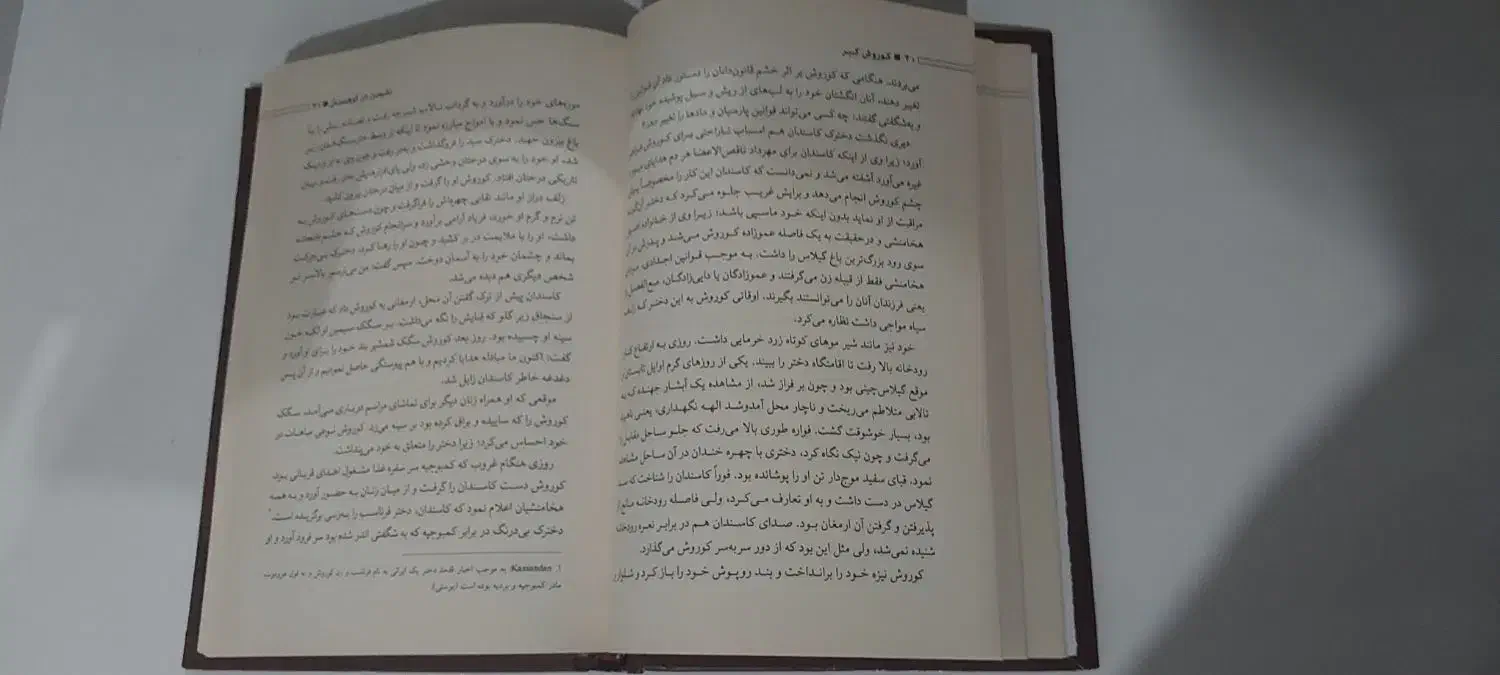 ۲۰ ■ کوروش کبیر
می‌بردند. هنگامی که کوروش بر اثر خشم قانون‌دانان را دستور داد آن قوانین را
تغییر دهند، آنان انگشتان خود را به لب‌های از ریش و سبیل پوشیده خود
و به‌شگفتی گفتند: چه کسی می‌تواند قوانین پارسیان و مادها را تغییر دهد؟
دیری نگذشت دخترک کاسندان هم اسباب ناراحتی برای کوروش فراهم
آورد؛ زیرا وی از اینکه کاسندان برای مهرداد ناقص‌الاعضا هر دم هدایایی میوه و
غیره می‌آورد آشفته می‌شد و نمی‌دانست که کاسندان این کار را مخصوصاً پیش
چشم کوروش انجام می‌دهد و برایش غریب جلوه می‌کرد که دختر
مراقبت از او نماید بدون اینکه خود ماسپی باشد؛ زیرا وی از خانواده اصیل
هخامنشی و درحقیقت به یک فاصله عموزاده کوروش می‌شد و پدرش در آن
سوی رود بزرگ‌ترین باغ گیلاس را داشت. به موجب قوانین اجدادی، مردان
هخامنشی فقط از قبیله زن می‌گرفتند و عموزادگان یا دایی‌زادگان،
یعنی فرزندان آنان را می‌توانستند بگیرند. اوقاتی کوروش به این دختر که زلف
سیاه مواجی داشت نظاره می‌کرد.
خود نیز مانند شیر موهای کوتاه زرد خرمایی داشت. روزی به ارتفاع کنار
رودخانه بالا رفت تا اقامتگاه دختر را ببیند. یکی از روزهای گرم اوایل تابستان و
موقع گیلاس‌چینی بود و چون بر فراز شد، از مشاهده یک آبشار جهنده که به
تالابی متلاطم می‌ریخت و ناچار محل آمدوشد الهه نگهداری، یعنی ناهید
بود، بسیار خوشوقت گشت. فواره طوری بالا می‌رفت که جلو ساحل مقابل را
می‌گرفت و چون نیک نگاه کرد، دختری با چهره خندان در آن ساحل مشاهده
نمود، قبای سفید موج‌دار تن او را پوشانده بود. فوراً کاسندان را شناخت که سبد
گیلاس در دست داشت و به او تعارف می‌کرد، ولی فاصله رودخانه مانع از
پذیرفتن و گرفتن آن ارمغان بود. صدای کاسندان هم در برابر نعره رودخانه
شنیده نمی‌شد، ولی مثل این بود که از دور سربه‌سر کوروش می‌گذارد.
کوروش نیزه خود را برانداخت و بند روپوش خود را باز کرد و شلوار و
نشیمن در کوهستان ■ ۲۱
موزه‌های خود را درآورد و به گرداب تالاب شیرجه رفت و
سنگ‌ها حس نمود و با امواج مبارزه نمود تا اینکه از وسط
باغ بیرون جهید. دخترک سبد را فروگذاشت و بدر رفت و چون وی به او نزدیک
شد، او خود را به سوی درختان وحشی زد، ولی پای‌افزارهایش بدر رفت و میان
تاریکی درختان افتاد. کوروش او را گرفت و از میان درختان بیرون کشید.
زلف دراز او مانند نقابی چهره‌اش را فراگرفت و چون دست‌های کوروش به
تن نرم و گرم او خورد، فریاد آرامی برآورد و سرانجام کوروش که خشم
داشت، او را با ملایمت در بر کشید و چون او را رها کرد، دخترک بی‌حرکت
بماند و چشمان خود را به آسمان دوخت. سپس گفت: من می‌ترسم بالاسر تو
شخص دیگری هم دیده می‌شد.
کاسندان پیش از ترک گفتن آن محل، ارمغانی به کوروش داد که عبارت بود
از سنجاق زیر گلو که قبایش را نگه می‌داشت. بر سگک سیمین او لکه خون
سینه او چسبیده بود. روز بعد کوروش سگک شمشیر بند خود را برای او آورد و
گفت: اکنون ما مبادله هدایا کردیم و با هم پیوستگی حاصل نمودیم و از آن پس
دغدغه خاطر کاسندان زایل شد.
موقعی که او همراه زنان دیگر برای تماشای مراسم درباری می‌آمد، سگک
کوروش را که ساییده و براق کرده بود بر سینه می‌زد. کوروش نوعی مباهات در
خود احساس می‌کرد؛ زیرا دختر را متعلق به خود می‌پنداشت.
روزی هنگام غروب که کمبوجیه سر سفره غذا مشغول اهدای قربانی بود،
کوروش دست کاسندان را گرفت و از میان زنان به حضور آورد و به همه
هخامنشیان اعلام نمود که کاسندان، دختر فرناسب را به‌زنی برگزیده است.¹
دخترک بی‌درنگ در برابر کمبوجیه که به شگفتی اندر شده بود سر فرود آورد و او
۱. Kassandan: به موجب اخبار قدما، دختر یک ایرانی به نام فرناسب و زن کوروش و به قول هرودوت
مادر کمبوجیه و بردیه بوده است (یوستی)